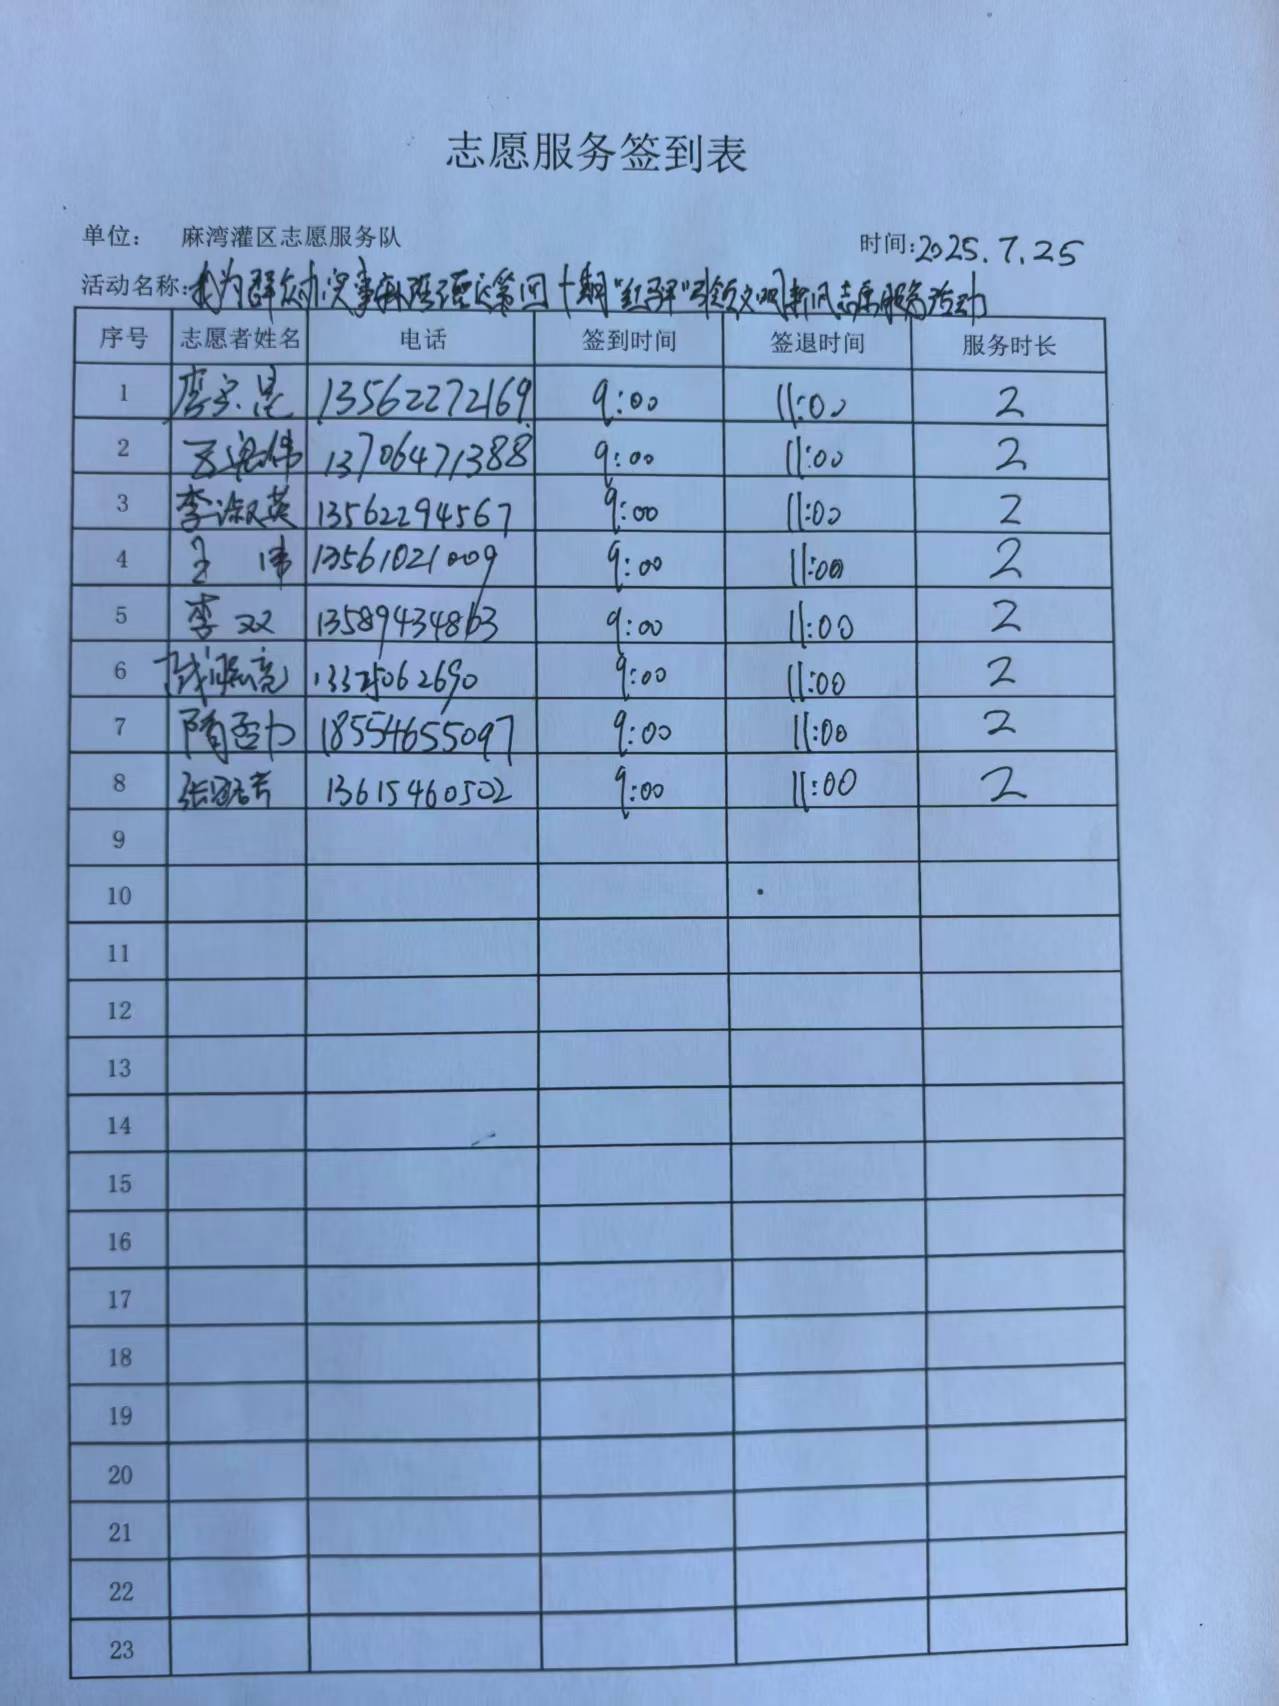 志愿服务签到表
单位： 麻湾灌区志愿服务队 时间:2025.7.25
活动名称:我为群众办实事 第四十期"红马甲"引领文明新风志愿服务活动
序号 志愿者姓名 电话 签到时间 签退时间 服务时长
1 13562272169 9:00 11:00 2
2 13706471388 9:00 11:00 2
3 李淑英 13562294567 9:00 11:00 2
4 王伟 13561021009 9:00 11:00 2
5 李双 13589434863 9:00 11:00 2
6 13325062690 9:00 11:00 2
7 隋孟力 18554655097 9:00 11:00 2
8 13615460502 9:00 11:00 2
9
10
11
12
13
14
15
16
17
18
19
20
21
22
23